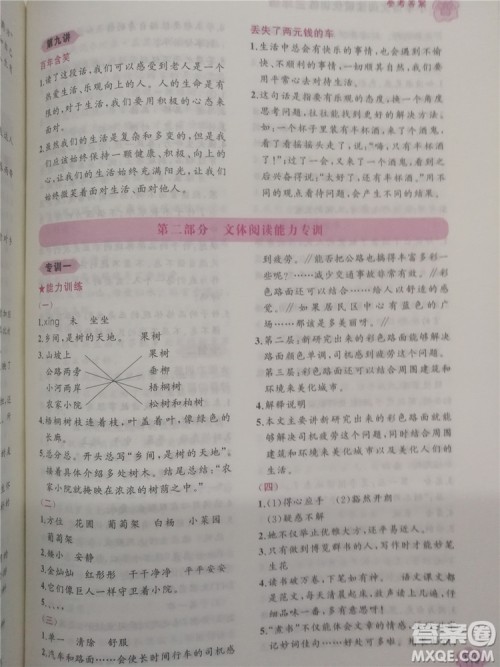 参考答案
第九讲
百年含笑
1.读了这段话,我们可以感受到老人是一个
热爱生活、乐观向上的人。人的生命是有
限的,对于生活,我们要以积极的心态来
面对。
2.虽然我们的生活是复杂和多变的,但是我
们应该始终保持一颗健康、积极、向上的
心,让我们的生活始终充满阳光,让我们
始终微笑着面对生活、面对世界。
丢失了两元钱的车
1.生活中总会有快乐的事情,也会有不愉
快、不顺利的事情,一切顺其自然,我们要
用乐观的心态去对待生活。
2.这句话是指要有乐观的态度,换一个角度
思考问题,就能找到更好的解决方法。
例:假如一个屋里有半杯酒,来了个酒鬼,
看了看摇摇头走了,“可惜,只有半杯酒
了!”过了一会儿,又来了个酒鬼,看了之后
兴奋得很:“好呀,还有半杯酒呢!”用乐
观的观点看待问题,会有意外的结果。
第二部分 文体阅读能力专训
专训一
★能力训练
(一)
1.xìng 未 坐坐
2.乡间,是树的天地。 果树
3.山坡上 果树
公路两旁 垂柳
小河两岸 梧桐树
农家小院 松树和柏树
4.梧桐树枝连着枝,叶盖着叶,像绿色的
长廊。
5.总分总。开头写“乡间,是树的天地”。
接着具体介绍多处树木。结尾写“农
家小院就掩映在浓浓的树荫之中”。
(二)
1.方位 花圃 葡萄架 白杨 小菜园
葡萄架
2.矮小 安静
3.金灿灿 红彤彤 干干净净 平平安安
4.它们像巨人一样守卫着小院。
(三)
1.单一 清除 舒服
2.汽车和路面……会使长时间行车的司机感
到疲劳。∥能否把公路也搞得丰富多彩一
些……减少交通事故。∥这种彩色
路面还可以……给人以舒适的感
觉。∥如果居民区中心有蓝色的广
场……那该是多美丽呀。∥
3.第二层:新研究出来的彩色路面能够解决
路面颜色单调,引起司机疲劳这个问题。
第三层:彩色路面还可以结合周围的建筑
和环境来美化城市。
4.解释说明
5.本文主要讲新研究出来的彩色路面就
能够解决司机疲劳这个问题,同时结合周围
的建筑和环境来美化城市以及人们的
生活。
(四)
1.(1)得心应手 (2)豁然开朗
(3)疑惑不解
2.她不仅举止优雅大方,出口更是不凡。
3.只有做到博览群书的人,写作时才能妙笔
生花
4.读书破万卷,下笔如有神。 语文课文都
是范文,每天清晨起来,放声读上几遍,仔
仔细品味一番,多有意思!
5.“煮书”不仅能体会文章的情感,
好词妙句,